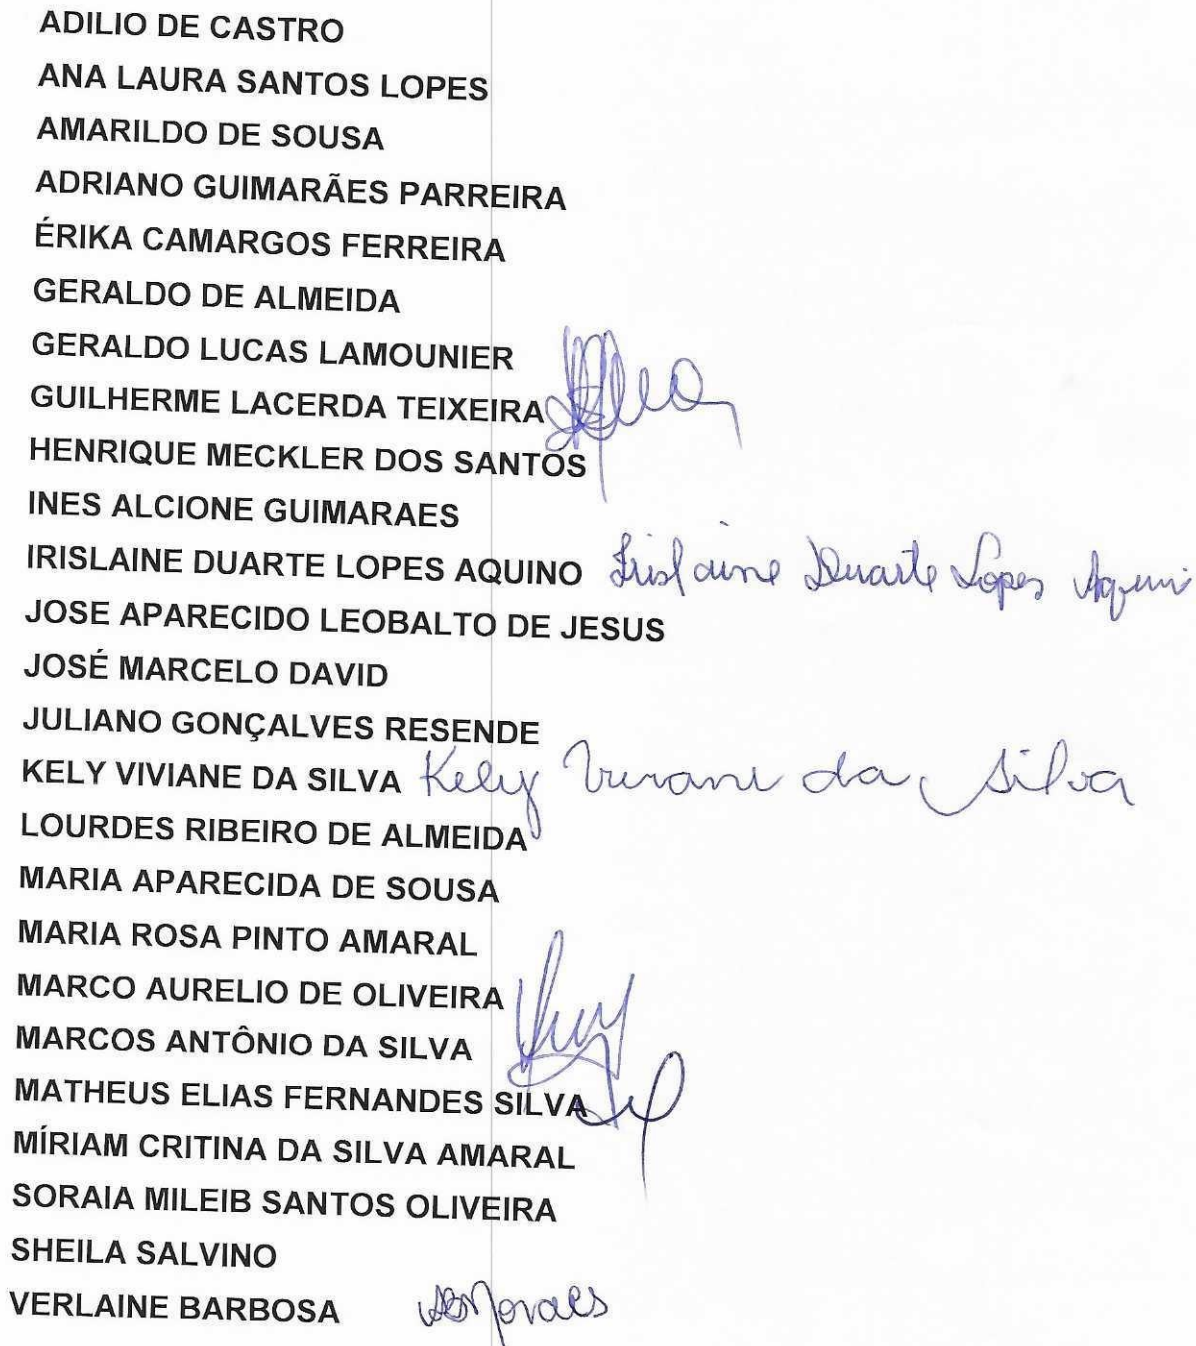 ADILIO DE CASTRO
ANA LAURA SANTOS LOPES
AMARILDO DE SOUSA
ADRIANO GUIMARÃES PARREIRA
ÉRIKA CAMARGOS FERREIRA
GERALDO DE ALMEIDA
GERALDO LUCAS LAMOUNIER
GUILHERME LACERDA TEIXEIRA
HENRIQUE MECKLER DOS SANTOS
INES ALCIONE GUIMARAES
IRISLAINE DUARTE LOPES AQUINO Irislaine Duarte Lopes
JOSE APARECIDO LEOBALTO DE JESUS
JOSÉ MARCELO DAVID
JULIANO GONÇALVES RESENDE
KELY VIVIANE DA SILVA Kely Viviane da Silva
LOURDES RIBEIRO DE ALMEIDA
MARIA APARECIDA DE SOUSA
MARIA ROSA PINTO AMARAL
MARCO AURELIO DE OLIVEIRA
MARCOS ANTÔNIO DA SILVA
MATHEUS ELIAS FERNANDES SILVA
MÍRIAM CRITINA DA SILVA AMARAL
SORAIA MILEIB SANTOS OLIVEIRA
SHEILA SALVINO
VERLAINE BARBOSA